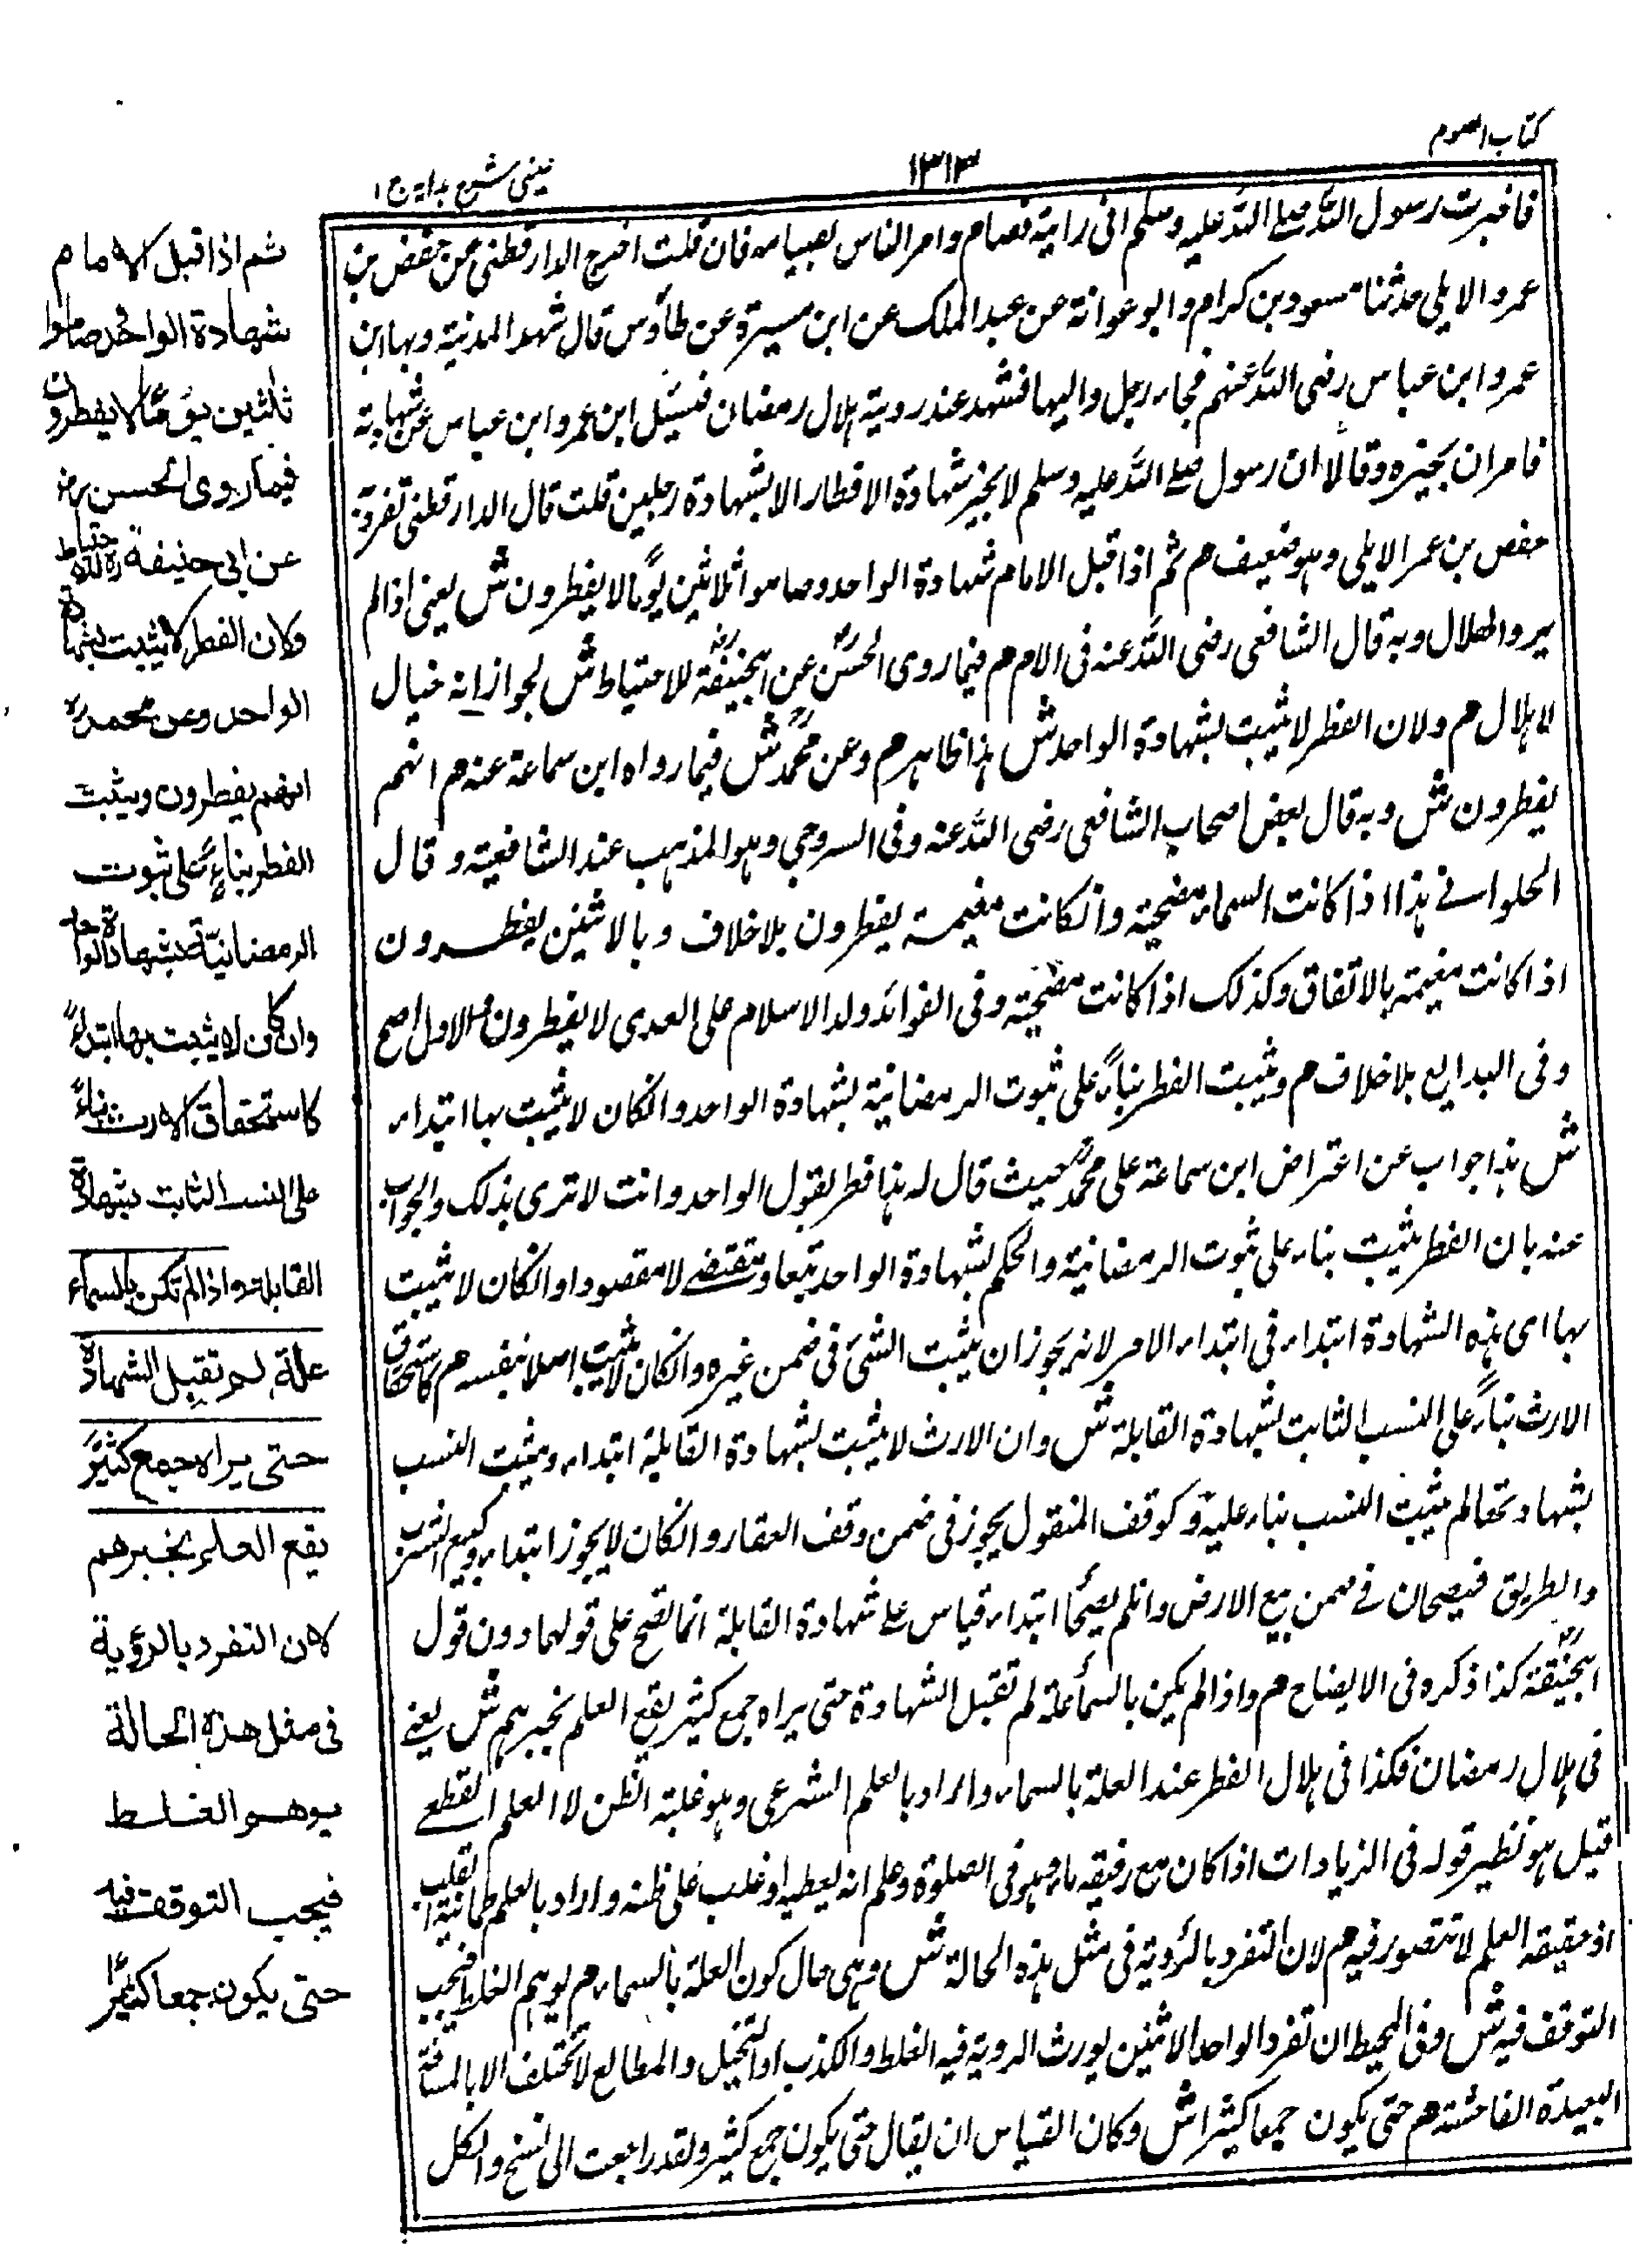 كتاب الصوم
١٣١٣
عينى شرح هدايه ج ١
فاخبرت رسول الله صلى الله عليه وسلم انى رايته فصام وامر الناس بصيامه فان قلت اخرج الدارقطنى عن حفص بن
عمر والايلى حدثنا مسعود بن كرام وابو عوانة عن عبد الملك عن ابن ميسرة عن طاؤس قال شهد المدنية وبها ابن
عمر وابن عباس رضى الله عنهم فجاء رجل واليها فشهد عند روية هلال رمضان فسئل ابن عمر وابن عباس عن شهادته
فامران يجيزه وقالا ان رسول صلى الله عليه وسلم لا يجيز شهادة الافطار الا بشهادة رجلين قلت قال الدارقطنى تفرد به
حفص بن عمر الايلى وهو ضعيف م ثم اذا قبل الامام شهادة الواحد وصاموا ثلاثين يوما لا يفطرون ش يعنى اذا لم
يروا الهلال وبه قال الشافعى رضى الله عنه فى الام م فيما روى الحسن عن ابيحنيفة للاحتياط ش لجواز انه خيال
لا هلال م ولان الفطر لا يثبت بشهادة الواحد ش هذا ظاهر م وعن محمد ش فيما رواه ابن سماعة عنه م انهم
يفطرون ش وبه قال بعض اصحاب الشافعى رضى الله عنه وفى السروجى وهو المذهب عند الشافعية وقال
الحلوانى هذا اذا كانت السماء مضحية وانكانت مغيمة يفطرون بلا خلاف وبالاثنين يفطرون
اذا كانت مغيمة بالاتفاق وكذلك اذا كانت مضحية وفى الفوائد ولد الاسلام على العدى لا يفطرون م والاول اصح
وفى البدايع بلا خلاف م ويثبت الفطر بناءً على ثبوت الرمضانية بشهادة الواحد وانكان لا يثبت بها ابتداء
ش هذا جواب عن اعتراض ابن سماعة على محمد حيث قال له هذا فطر بقول الواحد وانت لا ترى بذلك والجواب
عنه بان الفطر يثبت بناء على ثبوت الرمضانية والحكم بشهادة الواحد تبعا ومقتضى لا مقصودا وانكان لا يثبت
بها اى هذه الشهادة ابتداء فى ابتداء الامر لانه يجوز ان يثبت الشئ فى ضمن غيره وانكان لا يثبت اصلا بنفسه م كاستحقاق
الارث بناءً على النسب الثابت بشهادة القابلة ش وان الارث لا يثبت بشهادة القابلة ابتداء ويثبت النسب
بشهادتها لم يثبت النسب بناء عليه وكوقف المنقول يجوز فى ضمن وقف العقار وانكان لا يجوز ابتداء وكبيع الشرب
والطريق فيصحان فى ضمن بيع الارض وانلم يصحا ابتداء قياس على شهادة القابلة انما تصح على قولهما دون قول
ابيحنيفة كذا ذكره فى الايضاح م واذا لم يكن بالسماء علة لم تقبل الشهادة حتى يراه جمع كثير يقع العلم بخبرهم ش يعنى
فى هلال رمضان فكذا فى هلال الفطر عند العلة بالسماء والمراد بالعلم الشرعى وهو غلبة الظن لا العلم القطعى
قيل هو نظير قوله فى الزيادات اذا كان مع رفيقه ماء وهو فى الصلوة وعلم انه يعطيه او غلب على ظنه واراد بالعلم طمانية القلب
اذ حقيقة العلم لا تتصور فيه م لان التفرد بالروية فى مثل هذه الحالة ش وهى حال كون العلة بالسماء م يوهم الغلط فيجب
التوقف فيه ش وفى المحيط ان تفرد الواحد الاثنين يورث الروية فيه الغلط والكذب او التخيل والمطالع لا تختلف الا بالمسافة
البعيدة الفاحشة م حتى يكون جمعا كثيرا ش وكان القياس ان يقال حتى يكون جمع كثير ولقد راجعت الى نسخ والكل
ثم اذا قبل الامام
شهادة الواحد وصاموا
ثلثين يوما لا يفطرون
فيما روى الحسن رح
عن ابى حنيفة ره للاحتياط
ولان الفطر لا يثبت بشهادة
الواحد وعن محمد ره
انهم يفطرون ويثبت
الفطر بناءً على ثبوت
الرمضانية بشهادة الواحد
وان كان لا يثبت بها ابتداءً
كاستحقاق الارث بناءً
على النسب الثابت بشهادة
القابلة واذا لم تكن بالسماء
علة لم تقبل الشهادة
حتى يراه جمع كثير
يقع العلم بخبرهم
لان التفرد بالرؤية
فى مثل هذه الحالة
يوهم الغلط
فيجب التوقف فيه
حتى يكون جمعا كثيرًا